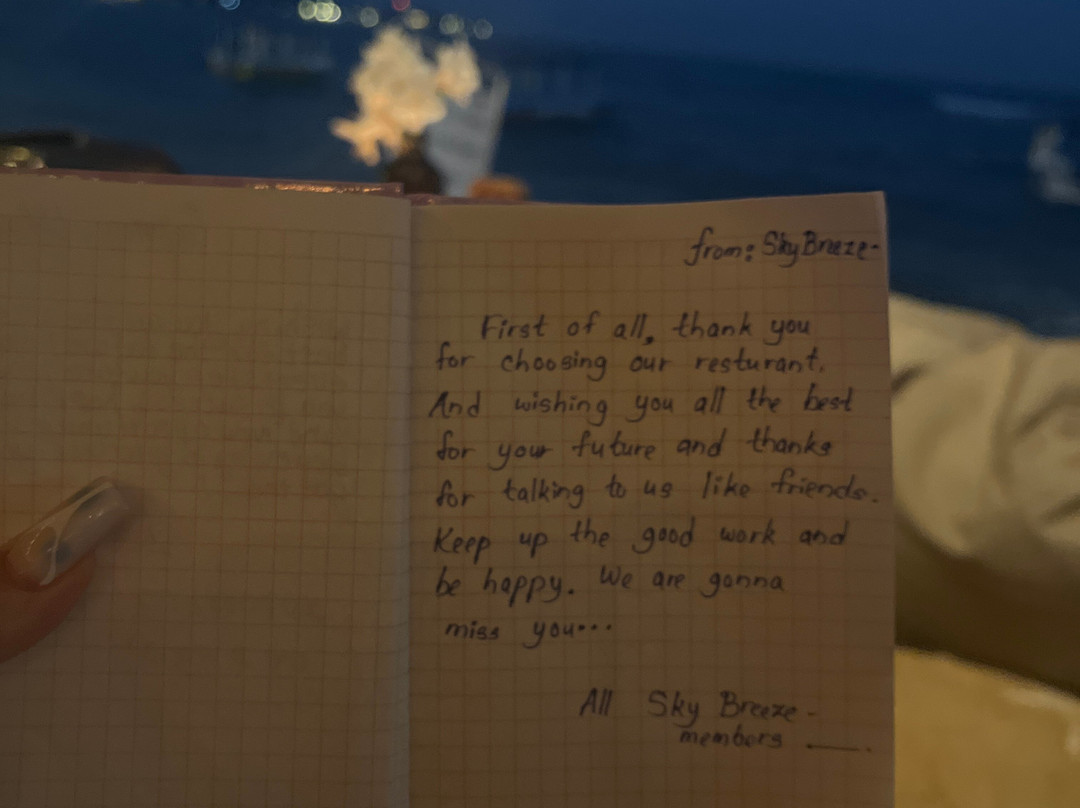 from: Sky Breeze-
First of all, thank you
for choosing our resturant.
And wishing you all the best
for your future and thanks
for talking to us like friends.
Keep up the good work and
be happy. We are gonna
miss you...
All Sky Breeze -
members ___.